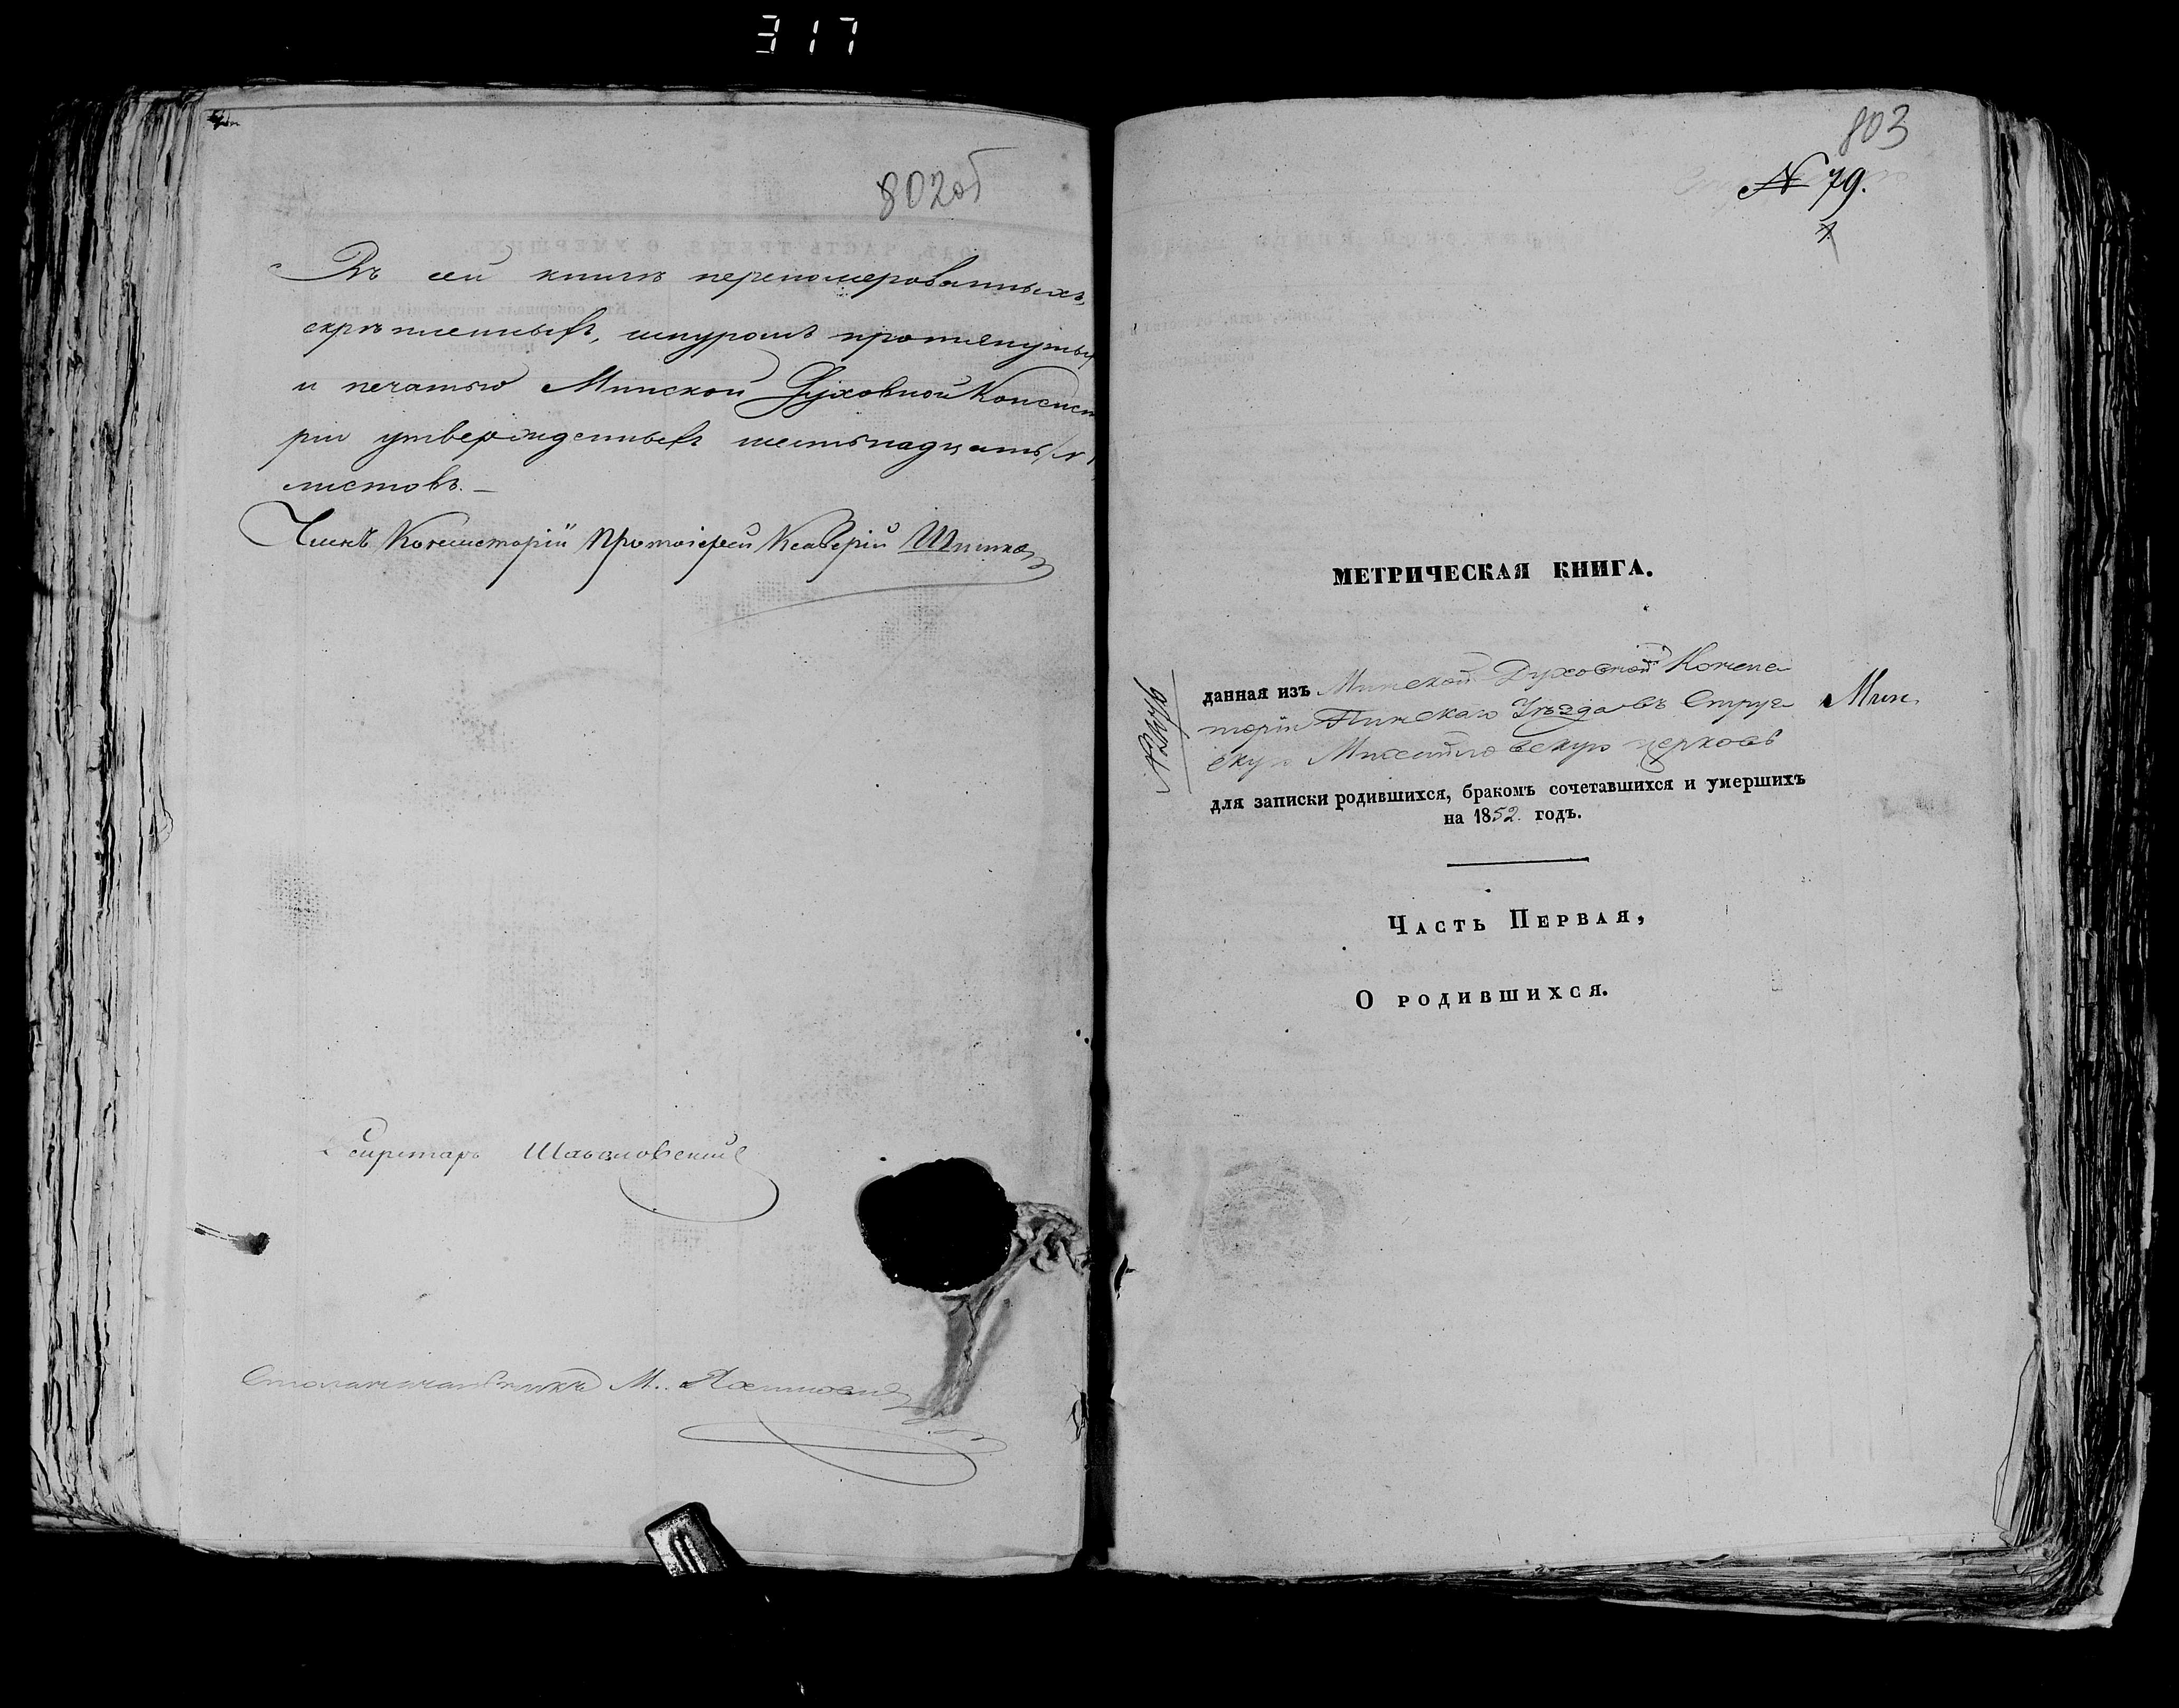 317
802об
Въ сей книгѣ переномерованныхъ,
скрѣпленныхъ, шнуромъ протянутых
и печатью Минской Духовной Консист
ріи утвержденныхъ шестьнадцать
листовъ. —
Членъ Консисторіи Протоіерей Ксаверій
Секретарь
М.
803
№ 79.
МЕТРИЧЕСКАЯ КНИГА.
данная изъ Минской Духовной Консис
торіи Пинскаго Уѣзда въ Струг
скую Михайловскую церковь
Мин.
для записки родившихся, бракомъ сочетавшихся и умершихъ
на 1852 годъ.
Часть Первая,
О родившихся.